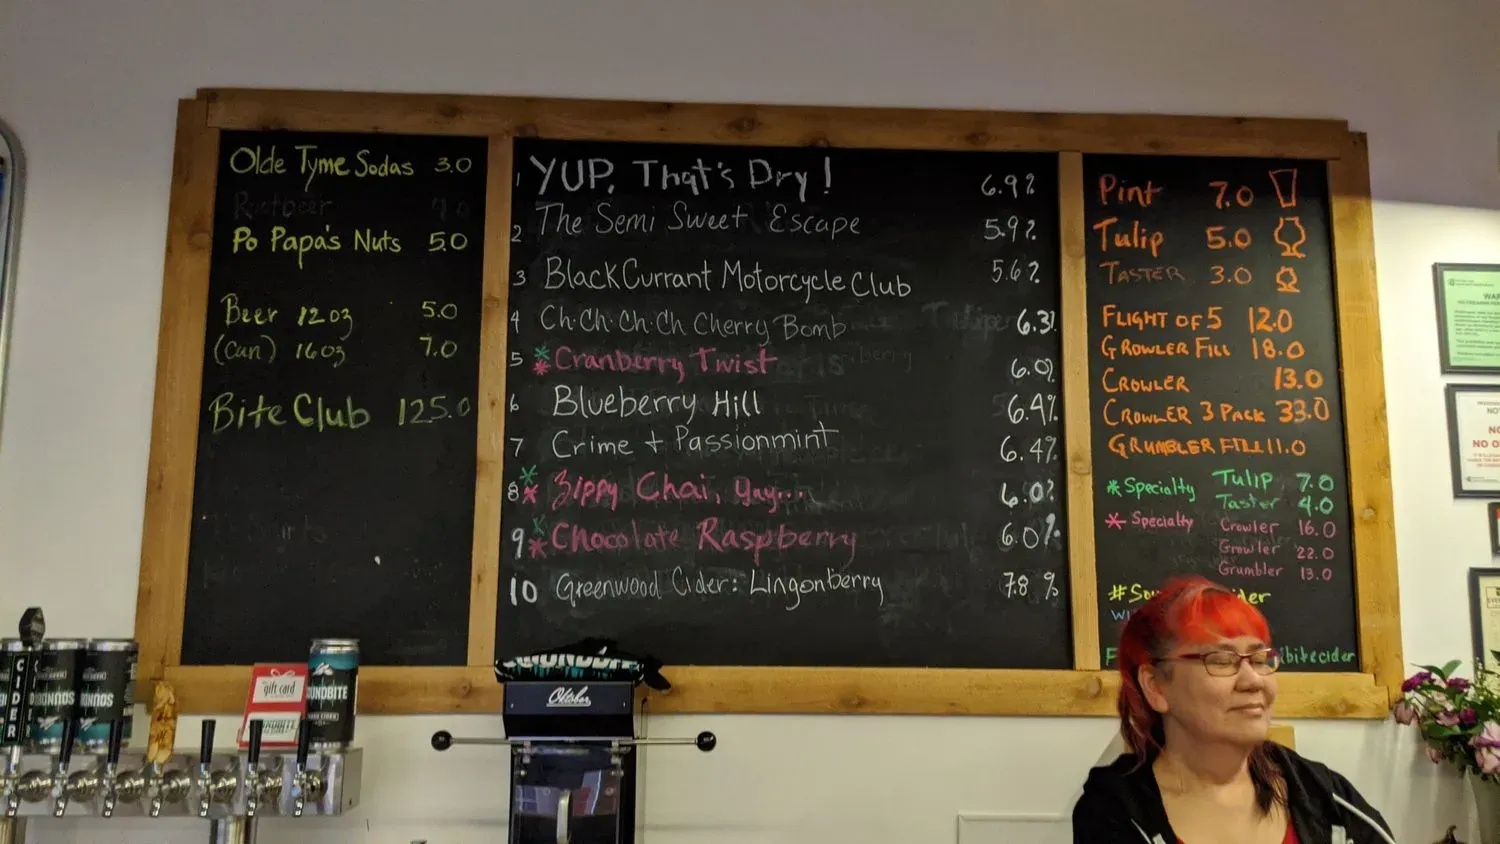 Olde Tyme Sodas 3.0
Rootbeer
Po Papa's Nuts 5.0
Beer 12oz 5.0
(Can) 16oz 7.0
Bite Club 125.0
1 YUP, That's Dry! 6.9%
2 The Semi Sweet Escape 5.9%
3 BlackCurrant Motorcycle Club 5.6%
4 Ch·Ch·Ch·Ch Cherry Bomb 6.3%
5 ** Cranberry Twist 6.0%
6 Blueberry Hill 6.4%
7 Crime + Passionmint 6.4%
8 ** Zippy Chai, yay... 6.0%
9 ** Chocolate Raspberry 6.0%
10 Greenwood Cider: Lingonberry 7.8%
Pint 7.0
Tulip 5.0
TASTER 3.0
FLIGHT OF 5 12.0
GROWLER FILL 18.0
CROWLER 13.0
CROWLER 3 PACK 33.0
GRUMBLER FILL 11.0
* Specialty Tulip 7.0
Taster 4.0
* Specialty Crowler 16.0
Growler 22.0
Grumbler 13.0
CIDER
gift card
UNDBITE
Oktober